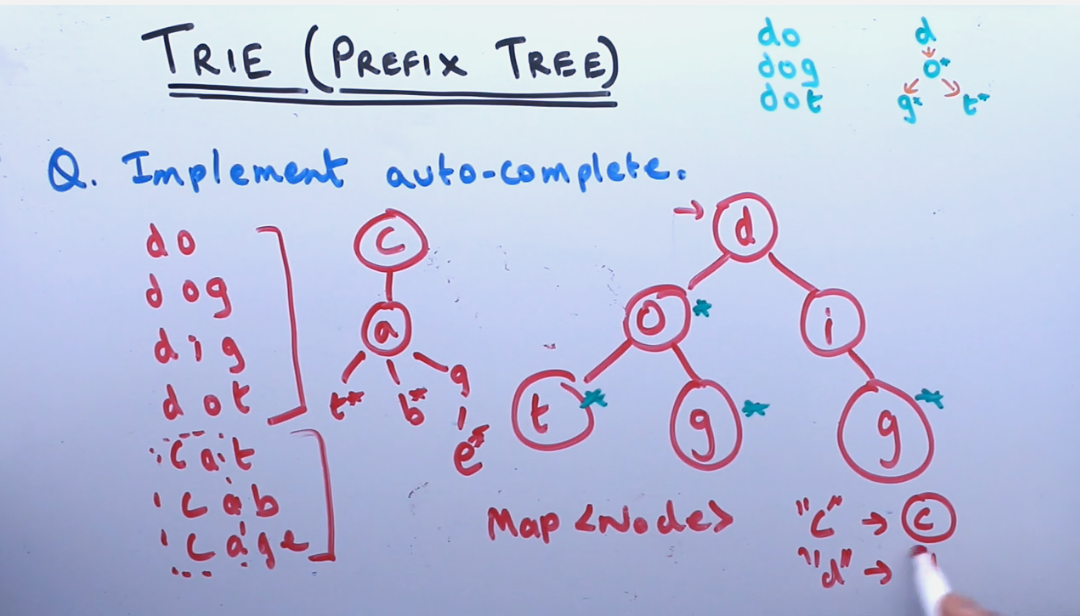 TRIE (PREFIX TREE)
do
dog
dot
d
o*
g* t*
Q. Implement auto-complete.
do
dog
dig
dot
cat
cab
cage
c
a
t* b* g
e*
d
o* i
t* g* g*
Map <Node>
"c" → c
"d" →